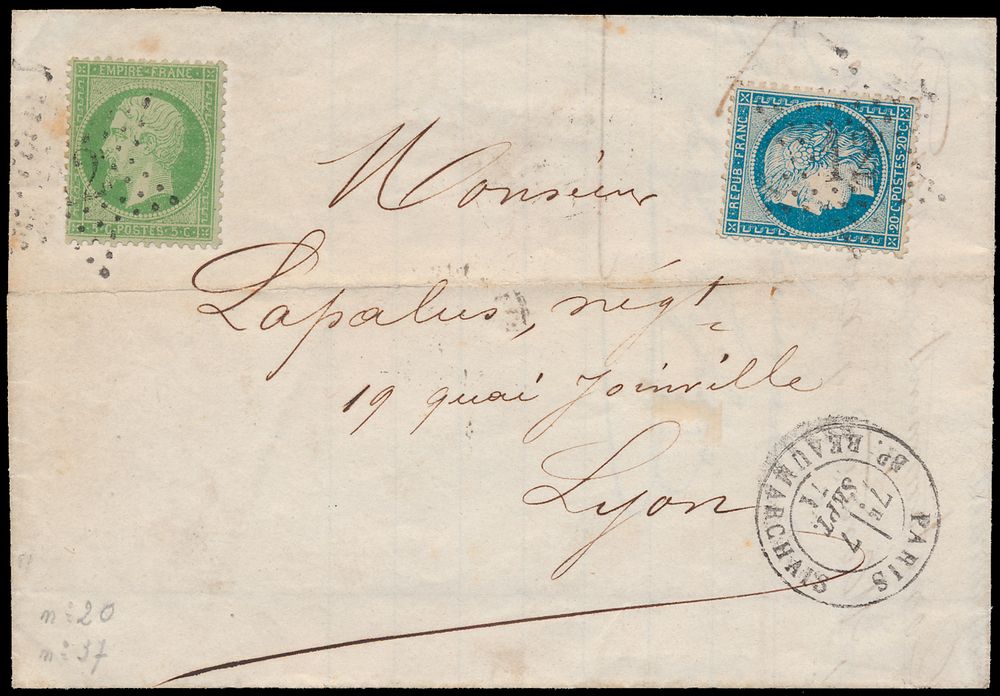 EMPIRE FRANC
5 C POSTES 5 C
REPUB FRANC
20 C POSTES 20 C
Monsieur
Lapalus, négt
19 quai Joinville
Lyon
PARIS
BD. BEAUMARCHAIS
7E
7
SEPT.
71
n° 20
n° 37